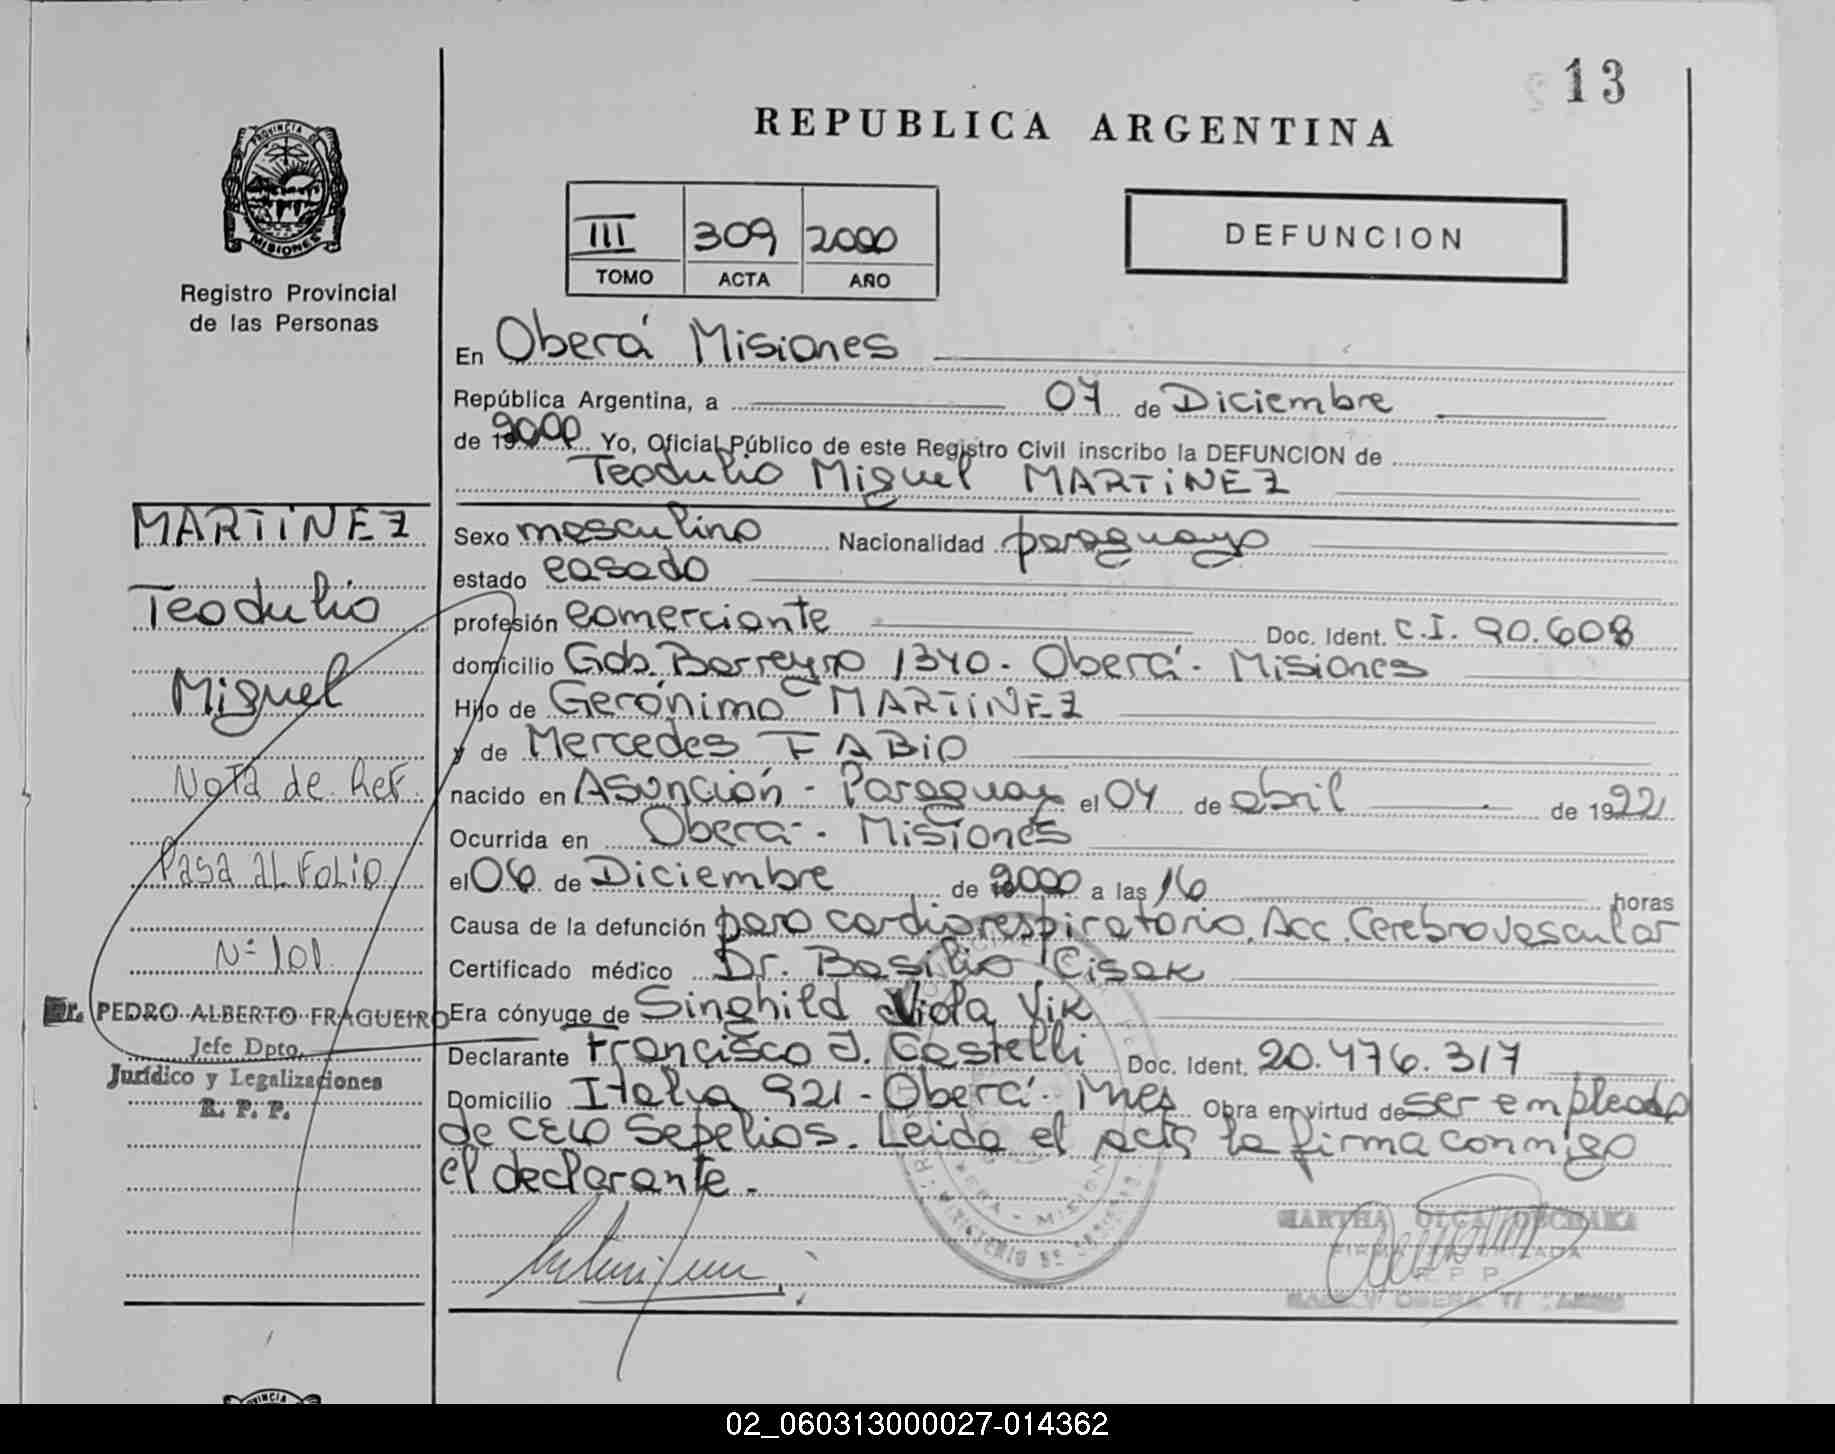 13
REPUBLICA ARGENTINA
PROVINCIA DE
MISIONES
Registro Provincial
de las Personas
III 309 2000
TOMO ACTA AÑO
DEFUNCION
En Oberá Misiones
República Argentina, a 07 de Diciembre
de 2000 Yo, Oficial Público de este Registro Civil inscribo la DEFUNCION de
Teodulio Miguel MARTINEZ
Sexo masculino Nacionalidad paraguayo
estado casado
profesión comerciante Doc. Ident. C.I. 90.608
domicilio Gob. Barreyro 1340 - Oberá - Misiones
Hijo de Gerónimo MARTINEZ
y de Mercedes FABIO
nacido en Asunción - Paraguay el 04 de abril de 1922
Ocurrida en Oberá - Misiones
el 06 de Diciembre de 2000 a las 16 horas
Causa de la defunción paro cardiorespiratorio. Acc. Cerebrovascular
Certificado médico Dr. Basilio Cisek
Era cónyuge de Singhild Viola Vik
Declarante Francisco J. Castelli Doc. Ident. 20.476.317
Domicilio Italia 921 - Oberá - Mnes Obra en virtud de ser empleado
de CELO Sepelios. Leida el acta la firma conmigo
el declarante.
MARTINEZ
Teodulio
Miguel
Nota de Ref.
Pasa al Folio
Nº 101
Dr. PEDRO ALBERTO FRAGUEIRO
Jefe Dpto.
Jurídico y Legalizaciones
R. P. P.
MARTHA OLGA
R P P
02_060313000027-014362